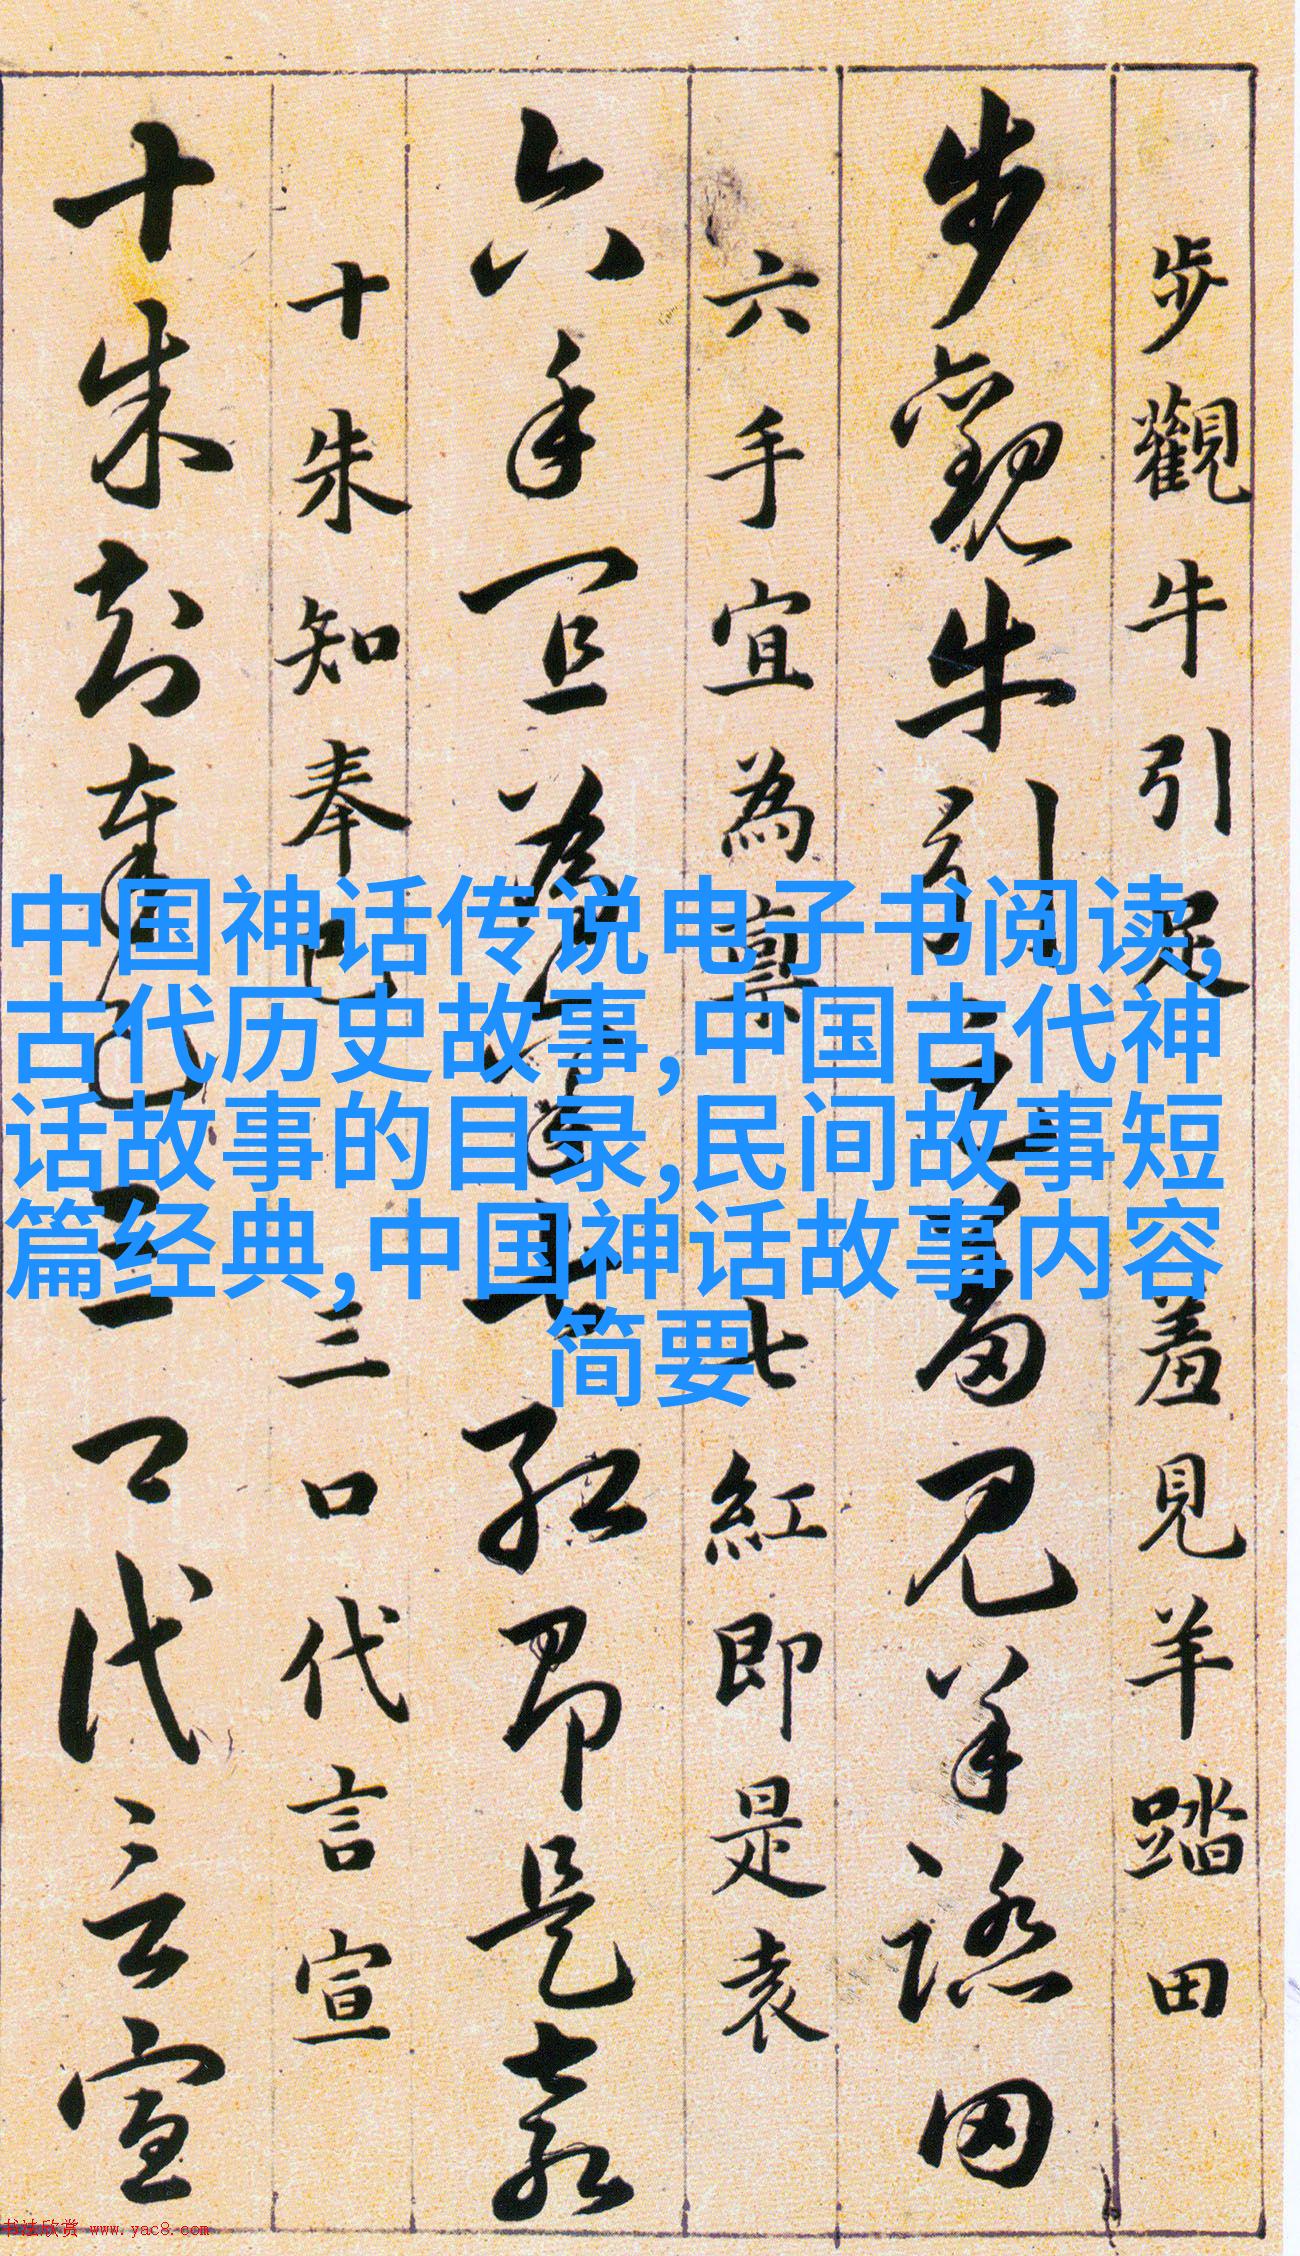 步觀牛引足羞見羊踏田
步觀牛引足羞見羊踏田
六手宜為稟七紅即是袁
六手宜為稟七紅即是袁
十朱知奉已三口代言宣
十朱知奉已三口代言宣
中国神话传说电子书阅读,
古代历史故事,中国古代神
话故事的目录,民间故事短
篇经典,中国神话故事内容
简要
书法欣赏 www.yac8.com